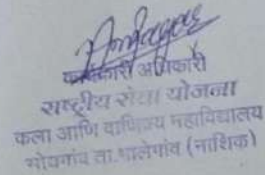 कार्यकारी अधिकारी
राष्ट्रीय सेवा योजना
कला आणि वाणिज्य महाविद्यालय
ता.मालेगांव (नाशिक)